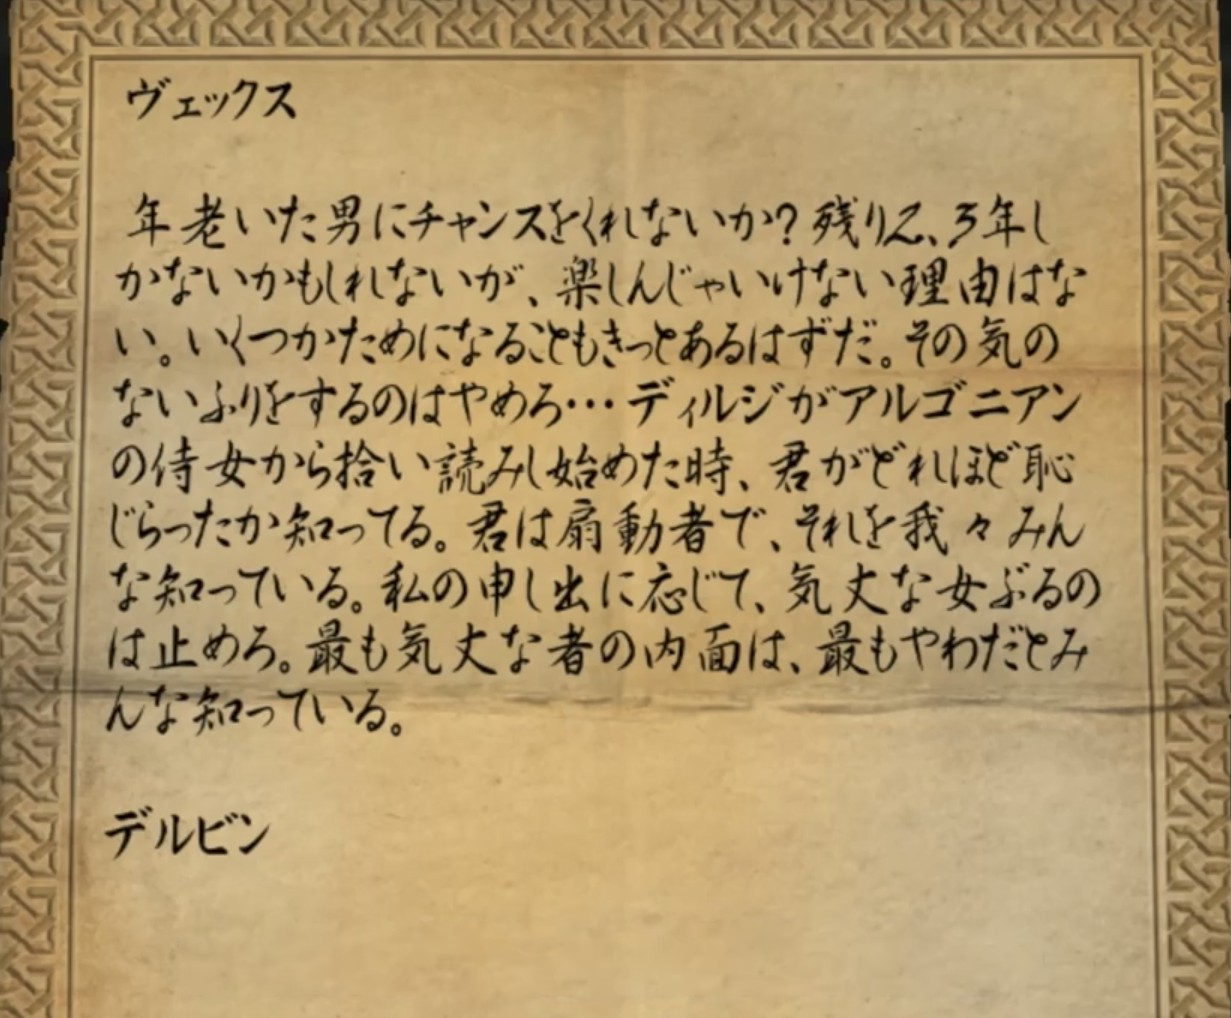 ヴェックス
年老いた男にチャンスをくれないか?残り2、3年し
かないかもしれないが、楽しんじゃいけない理由はな
い。いくつかためになることもきっとあるはずだ。その気の
ないふりをするのはやめろ…ディルジがアルゴニアン
の侍女から拾い読みし始めた時、君がどれほど恥
じらったか知ってる。君は扇動者で、それを我々みん
な知っている。私の申し出に応じて、気丈な女ぶるの
は止めろ。最も気丈な者の内面は、最もやわだとみ
んな知っている。
デルビン